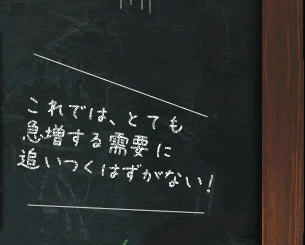 これでは、とても
急増する需要に
追いつくはずがない!